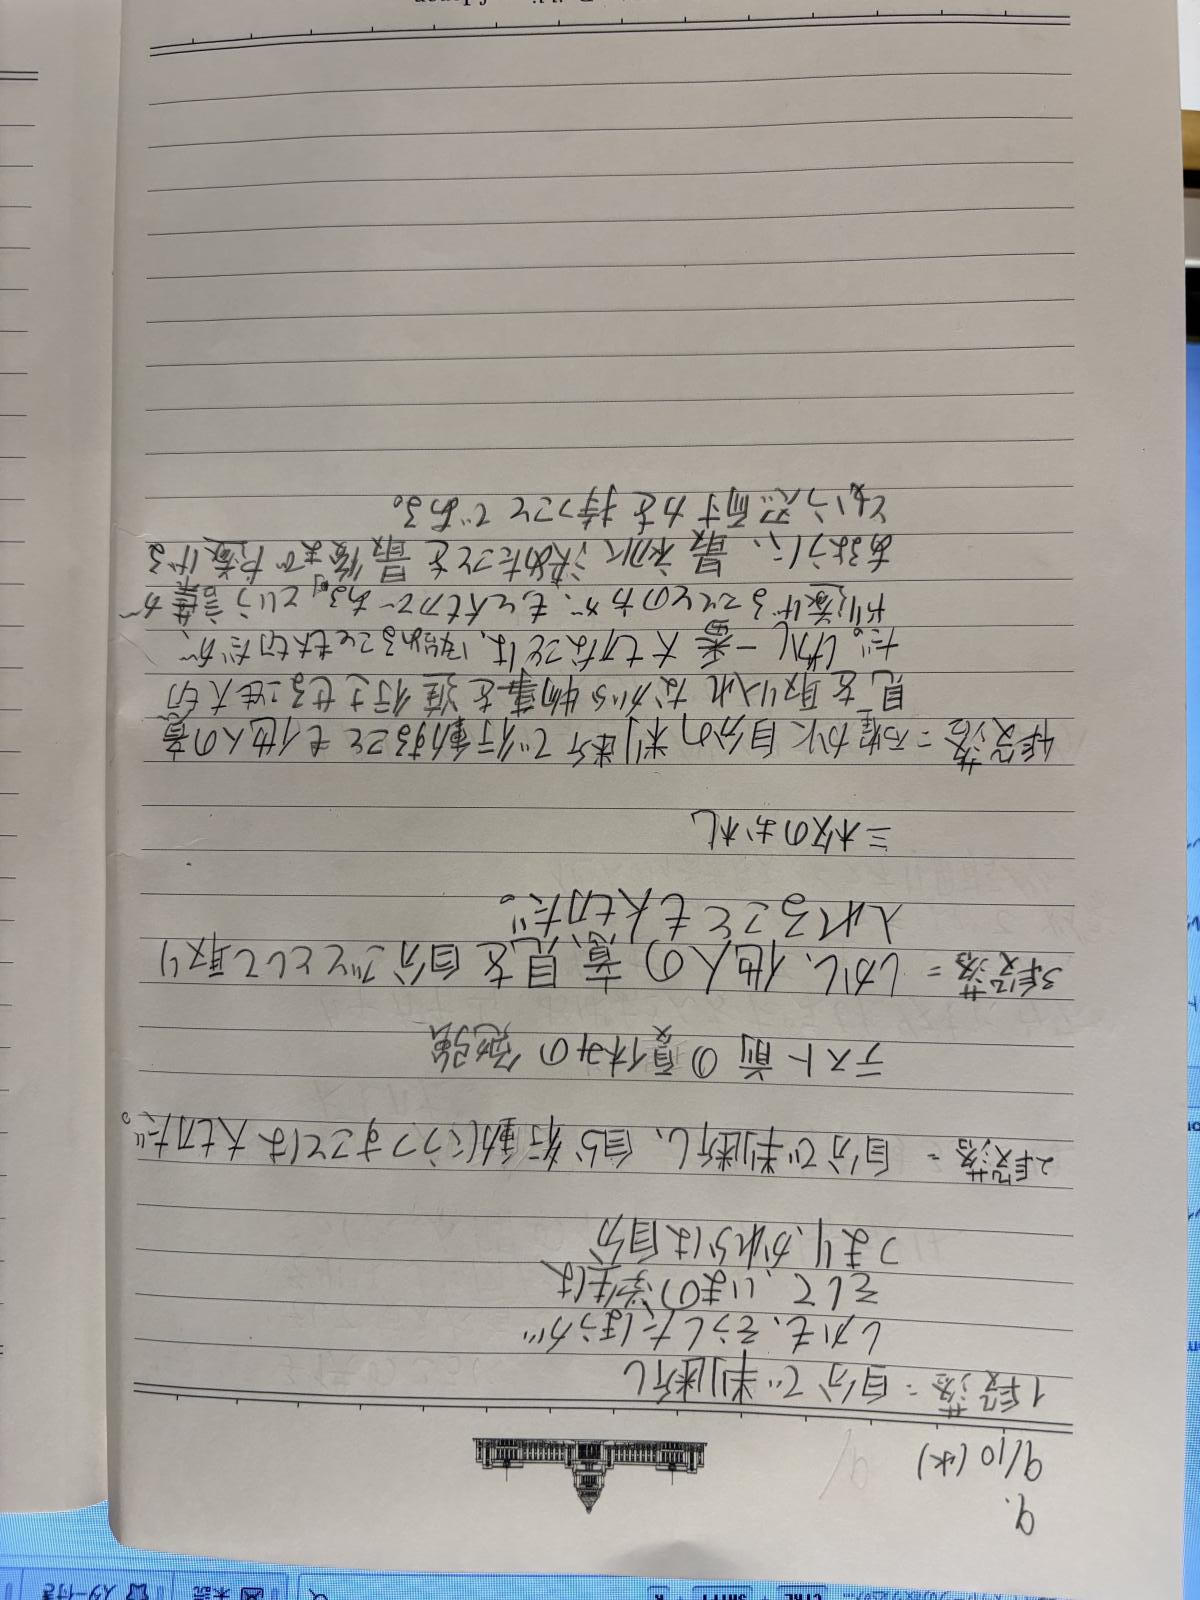 9.
9/10 (水)
1段落 = 自分で判断し
しかも、そうしたほうが
そして、いまの学生は、
つまり、かれらは自分
2段落 = 自分で判断し、自ら行動にうつすことは大切だ。
テスト前の夏休みの勉強
3段落 = しかし、他人の意見を自分ごととして取り
入れることも大切だ。
三枚のお札
4段落 = 確かに自分の判断で行動することも他人の意
見を取り入れながら物事を進行させることも大切
だ。しかし一番大切なことは、「始めることも大切だが、
やり遂げることのほうが、もと大切である」という言葉が
あるように、最初に決めたことを最後までやり遂げる
という忍耐力を持つことである。
未読
スター付き
CTRL
SHIFT
+
R